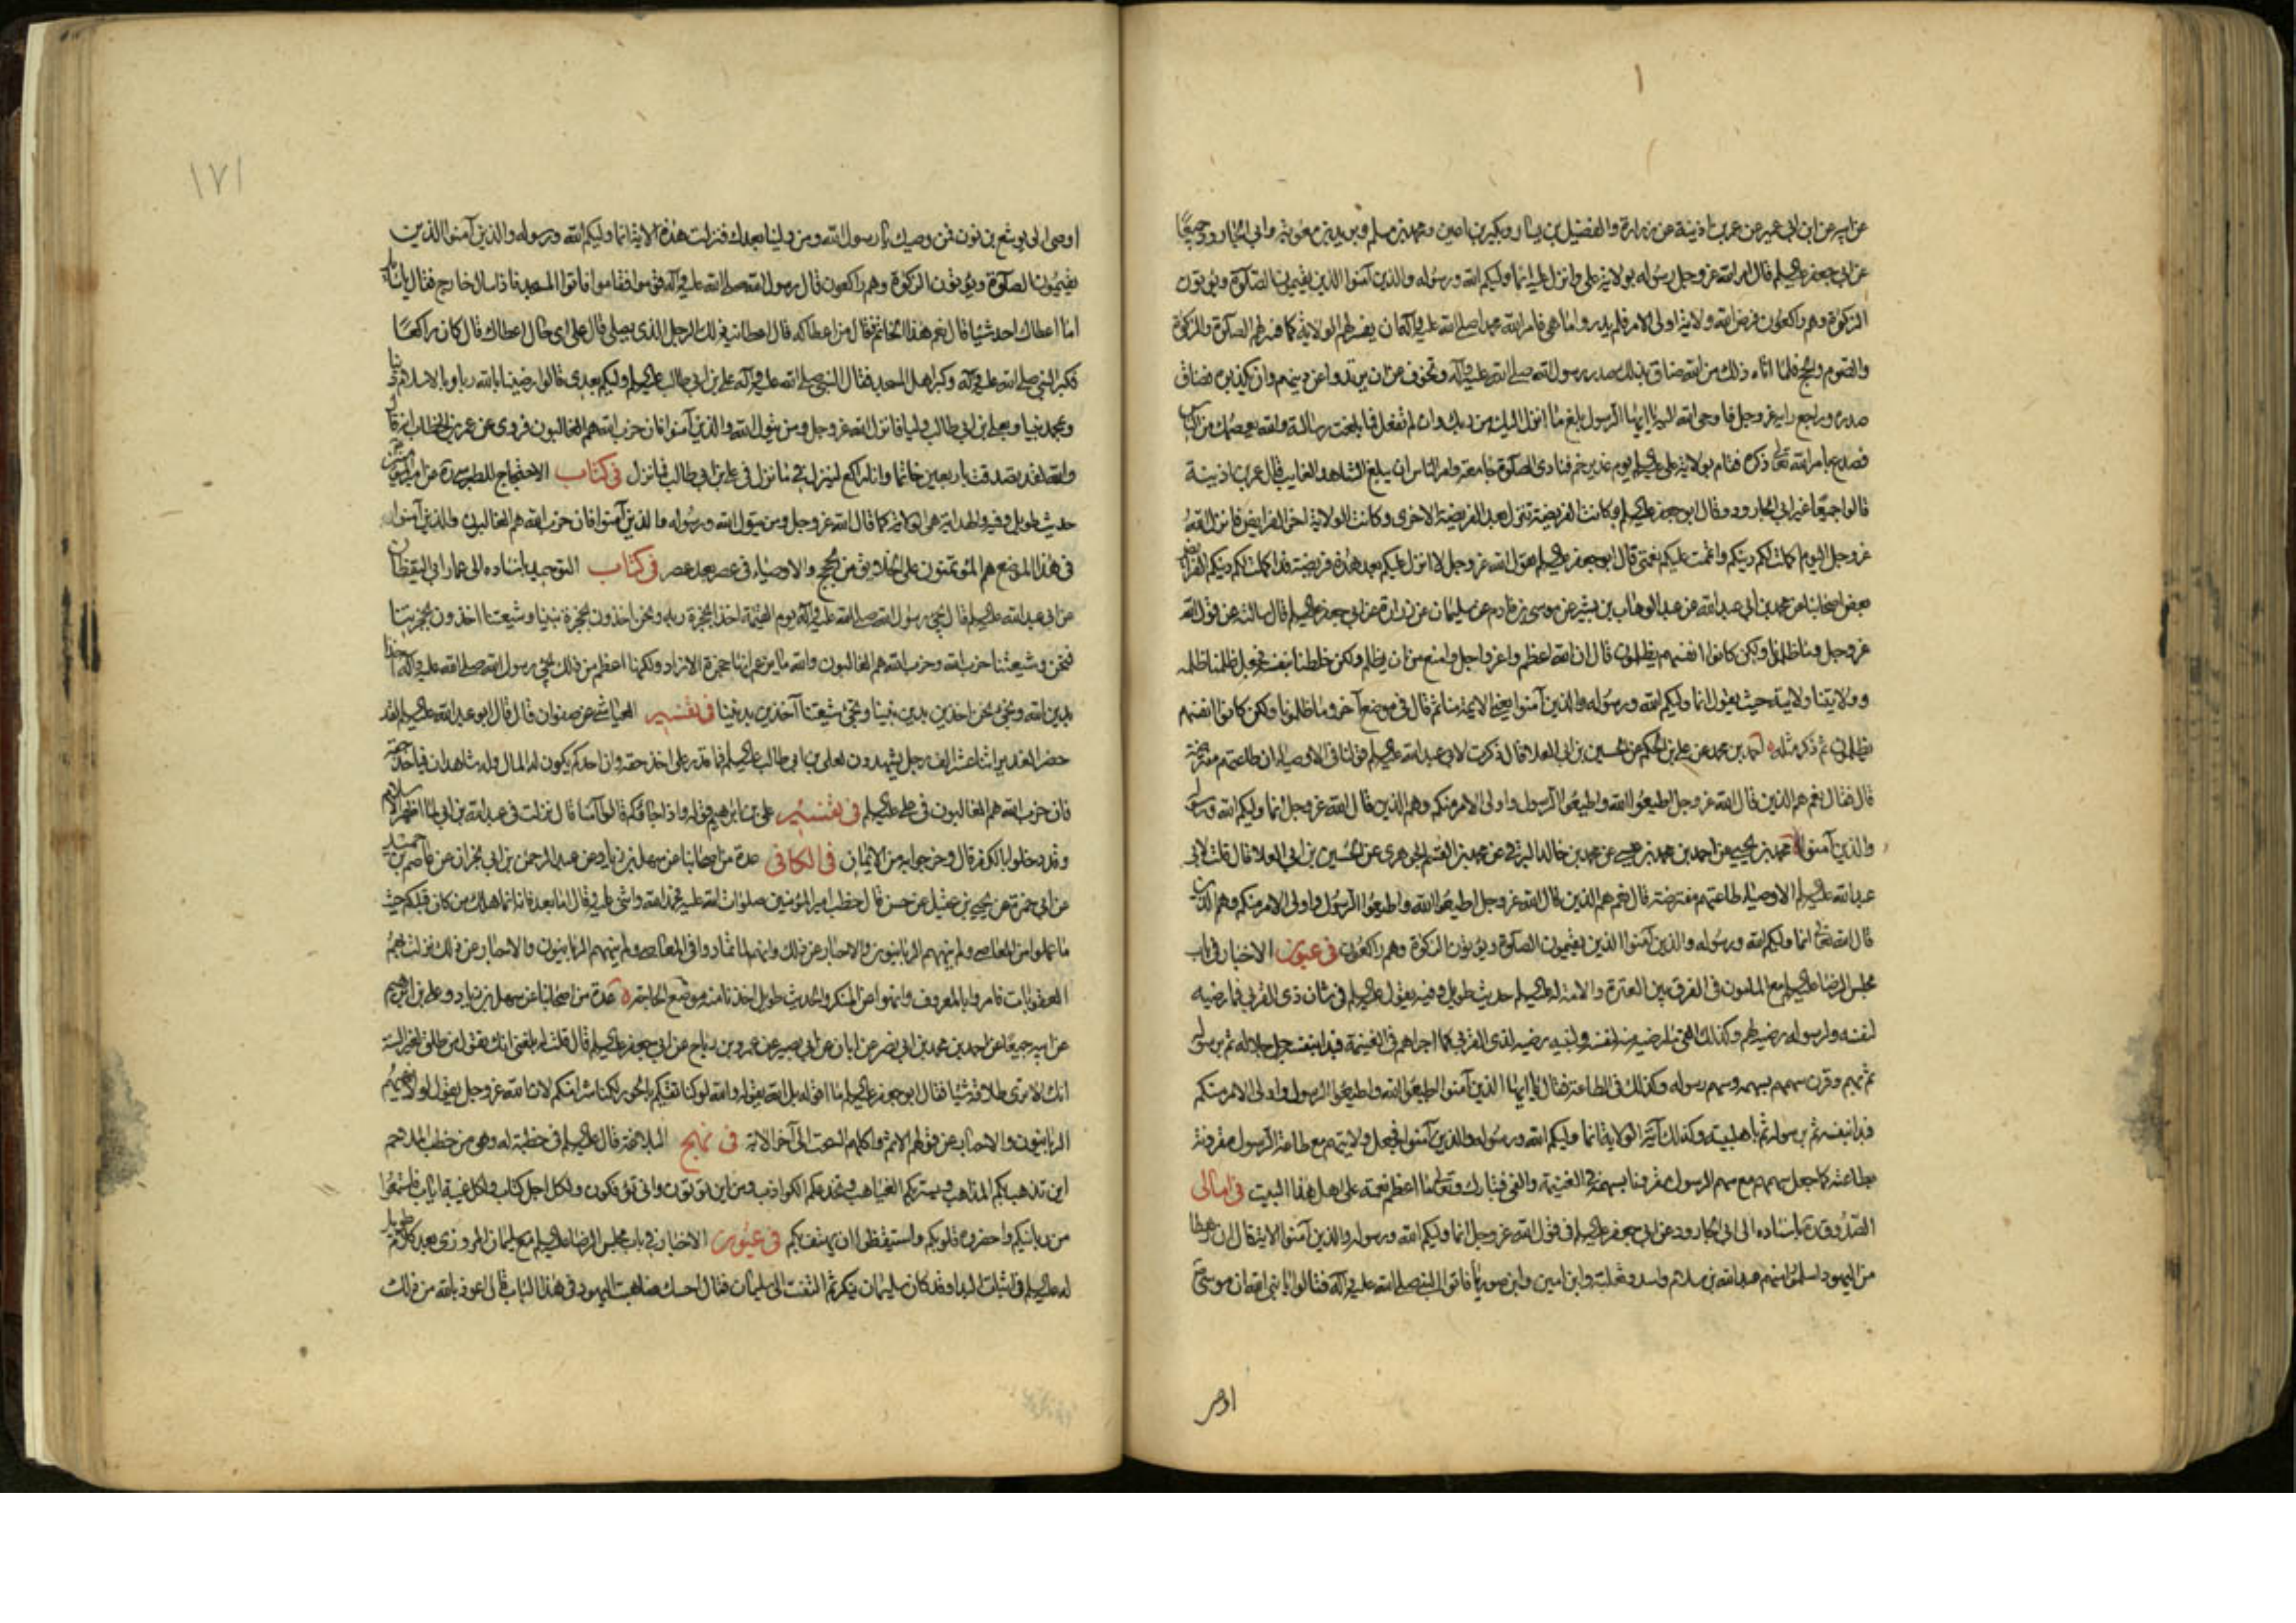 عن ابيه عن ابن ابي عمير عن عمر بن اذينة عن زرارة والفضيل بن يسار وبكير بن اعين ومحمد بن مسلم وبريد بن معوية وابي الجارود جميعًا
عن ابي جعفر عليه السلم قال امر الله عز وجل رسوله بولاية علي وانزل عليه انما وليكم الله ورسوله والذين آمنوا الذين يقيمون الصلوة ويؤتون
الزكوة وهم راكعون فرض الله ولاية اولى الامر فلم يدروا ما هي فامر الله محمدا صلى الله عليه وآله ان يفسر لهم الولاية كما فسر لهم الصلوة والزكوة
والصوم والحج فلما اتاه ذلك من الله ضاق بذلك صدر رسول الله صلى الله عليه وآله وتخوف من ان يرتدوا عن دينهم وان يكذبوه فضاق
صدره وراجع ربه عز وجل فاوحى الله اليه يا ايها الرسول بلغ ما انزل اليك من ربك وان لم تفعل فما بلغت رسالته والله يعصمك من الناس
فصدع بامر الله تعالى ذكره فقام بولاية علي عليه السلم يوم غدير خم فنادى الصلوة جامعة وامر الناس ان يبلغ الشاهد الغايب قال عمر بن اذينة
قالوا جميعًا غير ابي الجارود وقال ابو جعفر عليه السلم وكانت الفريضة تنزل بعد الفريضة الاخرى وكانت الولاية اخر الفرايض فانزل الله
عز وجل اليوم اكملت لكم دينكم واتممت عليكم نعمتي قال ابو جعفر عليه السلم يقول الله عز وجل لا انزل عليكم بعد هذه فريضة قد اكملت لكم دينكم الفرايض
بعض اصحابنا عن محمد بن ابي عبد الله عن عبد الوهاب بن بشير عن موسى بن قادم عن سليمان عن زرارة عن ابي جعفر عليه السلم قال سالته عن قول الله
عز وجل وما ظلمونا ولكن كانوا انفسهم يظلمون قال ان الله اعظم واعز واجل وامنع من ان يظلم ولكن خلطنا بنفسه فجعل ظلمنا ظلمه
وولايتنا ولايته حيث يقول انما وليكم الله ورسوله والذين آمنوا يعني الائمة منا ثم قال في موضع آخر وما ظلمونا ولكن كانوا انفسهم
يظلمون ثم ذكر مثله احمد بن محمد عن علي بن الحكم عن الحسين بن ابي العلا قال ذكرت لابي عبد الله عليه السلم قولنا في الاوصياء ان طاعتهم مفترضة
قال فقال نعم هم الذين قال الله عز وجل اطيعوا الله واطيعوا الرسول واولى الامر منكم وهم الذين قال الله عز وجل انما وليكم الله ورسوله
والذين آمنوا محمد بن يحيى عن احمد بن محمد بن عيسى عن محمد بن خالد البرقي عن محمد بن القسم الجوهري عن الحسين بن ابي العلا قال قلت لابي
عبد الله عليه السلم الاوصياء طاعتهم مفترضة قال نعم هم الذين قال الله عز وجل اطيعوا الله واطيعوا الرسول واولى الامر منكم وهم الذين
قال الله تعالى انما وليكم الله ورسوله والذين آمنوا الذين يقيمون الصلوة ويؤتون الزكوة وهم راكعون في عيون الاخبار في باب
مجلس الرضا عليه السلم مع المامون في الفرق بين العترة والامة له عليه السلم حديث طويل وفيه يقول عليه السلم في شان ذي القربى فما رضيه
لنفسه ولرسوله رضيه لهم وكذلك الفئ ما رضيه منه لنفسه ولنبيه رضيه لذي القربى كما اجراهم في الغنيمة فبدا بنفسه جل جلاله ثم برسوله
ثم بهم وقرن سهمهم بسهمه وسهم رسوله وكذلك في الطاعة فقال يا ايها الذين آمنوا اطيعوا الله واطيعوا الرسول واولى الامر منكم
فبدا بنفسه ثم برسوله ثم باهل بيته وكذلك آية الولاية انما وليكم الله ورسوله والذين آمنوا فجعل ولايتهم مع طاعة الرسول مقرونة
بطاعته كما جعل سهمهم مع سهم الرسول مقرونا بسهمه في الغنيمة والفئ فتبارك وتعالى ما اعظم نعمته على اهل هذا البيت في امالى
الصدوق ره باسناده الى ابي الجارود عن ابي جعفر عليه السلم في قول الله عز وجل انما وليكم الله ورسوله والذين آمنوا الاية قال ان رهطا
من اليهود اسلموا منهم عبد الله بن سلام واسد وثعلبة وابن امين وابن صوريا فاتوا النبي صلى الله عليه وآله فقالوا يا نبي الله ان موسى
اوصى
١٧١
اوصى الى يوشع بن نون فمن وصيك يا رسول الله ومن ولينا بعدك فنزلت هذه الاية انما وليكم الله ورسوله والذين آمنوا الذين
يقيمون الصلوة ويؤتون الزكوة وهم راكعون قال رسول الله صلى الله عليه وآله قوموا فقاموا فاتوا المسجد فاذا سائل خارج فقال يا سائل
اما اعطاك احد شيئا قال نعم هذا الخاتم قال من اعطاكه قال اعطانيه ذلك الرجل الذي يصلي قال على اي حال اعطاك قال كان راكعًا
فكبر النبي صلى الله عليه وآله وكبر اهل المسجد فقال النبي صلى الله عليه وآله علي بن ابي طالب عليه السلم وليكم بعدي قالوا رضينا بالله ربا وبالاسلام دينا
وبمحمد نبيا وبعلي بن ابي طالب وليا فانزل الله عز وجل ومن يتول الله ورسوله والذين آمنوا فان حزب الله هم الغالبون فروى عن عمر بن الخطاب انه قال
والله لقد تصدقت باربعين خاتما وانا راكع لينزل في ما نزل في علي بن ابي طالب فما نزل في كتاب الاحتجاج للطبرسي ره عن امير المؤمنين
حديث طويل وفيه والهداية هي الولاية كما قال الله عز وجل ومن يتول الله ورسوله والذين آمنوا فان حزب الله هم الغالبون والذين آمنوا
في هذا الموضع هم المؤتمنون على الخلائق من الحجج والاوصياء في عصر بعد عصر في كتاب التوحيد باسناده الى عمار ابي اليقظان
عن ابي عبد الله عليه السلم قال يجئ رسول الله صلى الله عليه وآله يوم القيمة اخذا بحجزة ربه ونحن اخذون بحجزة نبينا وشيعتنا اخذون بحجزتنا
فنحن وشيعتنا حزب الله وحزب الله هم الغالبون والله ما يزعم انها حجزة الازار ولكنها اعظم من ذلك يجئ رسول الله صلى الله عليه وآله اخذا
بدين الله ونجئ نحن اخذين بدين نبينا وتجئ شيعتنا آخذين بديننا في تفسير العياشي عن صفوان قال قال ابو عبد الله عليه السلم لقد
حضر الغدير اثنا عشر الف رجل يشهدون لعلي بن ابي طالب عليه السلم فما قدر على اخذ حقه وان احدكم يكون له المال وله شاهدان فياخذ حقه
فان حزب الله هم الغالبون في علي عليه السلم في تفسير علي بن ابراهيم قوله واذا جاؤكم قالوا آمنا قال نزلت في عبد الله بن ابي لما اظهر الاسلام
وقد دخلوا بالكفر قال وخرجوا به من الايمان في الكافي عدة من اصحابنا عن سهل بن زياد عن عبد الرحمن بن ابي نجران عن عاصم بن حميد
عن ابي حمزة عن يحيى بن عقيل عن حسن قال خطب امير المؤمنين صلوات الله عليه فحمد الله واثنى عليه وقال اما بعد فانه انما هلك من كان قبلكم حيث
ما عملوا من المعاصي ولم ينههم الربانيون والاحبار عن ذلك وانهم لما تمادوا في المعاصي ولم ينههم الربانيون والاحبار عن ذلك نزلت بهم
العقوبات فامروا بالمعروف وانهوا عن المنكر والحديث طويل اخذنا منه موضع الحاجة عدة من اصحابنا عن سهل بن زياد وعلي بن ابراهيم
عن ابيه جميعًا عن احمد بن محمد بن ابي نصر عن ابان عن ابي بصير عن عمرو بن رباح عن ابي جعفر عليه السلم قال قلت له بلغني انك تقول من طلق لغير السنة
انك لا ترى طلاقه شيئا فقال ابو جعفر عليه السلم ما اقوله بل الله يقوله والله لو كنا نفتيكم بالجور لكنا شرا منكم لان الله عز وجل يقول لولا ينهيهم
الربانيون والاحبار عن قولهم الاثم واكلهم السحت الى آخر الاية في نهج البلاغة قال عليه السلم في خطبة له وهي من خطب الملاحم
اين تذهب بكم المذاهب وتيه بكم الغياهب وتخدعكم الكواذب ومن اين تؤتون وانى تؤفكون ولكل اجل كتاب ولكل غيبة اياب فاستمعوا
من ربانيكم واحضروه قلوبكم واستيقظوا ان هتف بكم في عيون الاخبار في باب مجلس الرضا عليه السلم مع سليمان المروزي بعد كلام طويل
له عليه السلم في اثبات البدا وقد كان سليمان ينكره ثم التفت الى سليمان فقال احسبك ضاهيت اليهود في هذا الباب قال اعوذ بالله من ذلك